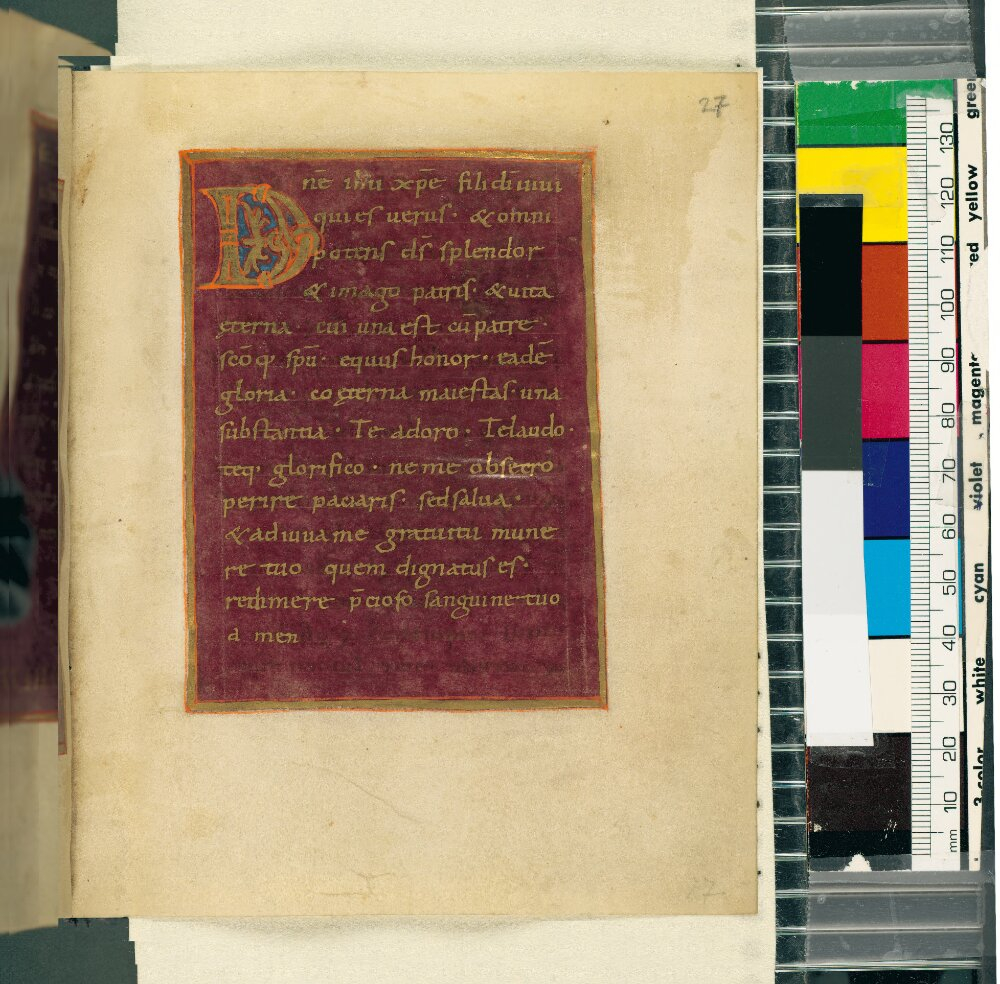 27
Dnē ihu xpē fili di uiui
qui es uerus · & omni
potens ds̄ splendor
& imago patris · & uita
ęterna · cui una est cū patre ·
scōq; spū · equus honor · eadē
gloria · coęterna maiestas · una
substantia · Te adoro · Te laudo ·
teq; glorifico · ne me obsecro
perire paciaris · sed salua ·
& adiuua me gratuitu mune
re tuo quem dignatus es ·
redimere p̄cioso sanguine tuo
a men
27
mm 10 20 30 40 50 60 70 80 90 100 110 120 130
3-color white cyan violet magenta red yellow green